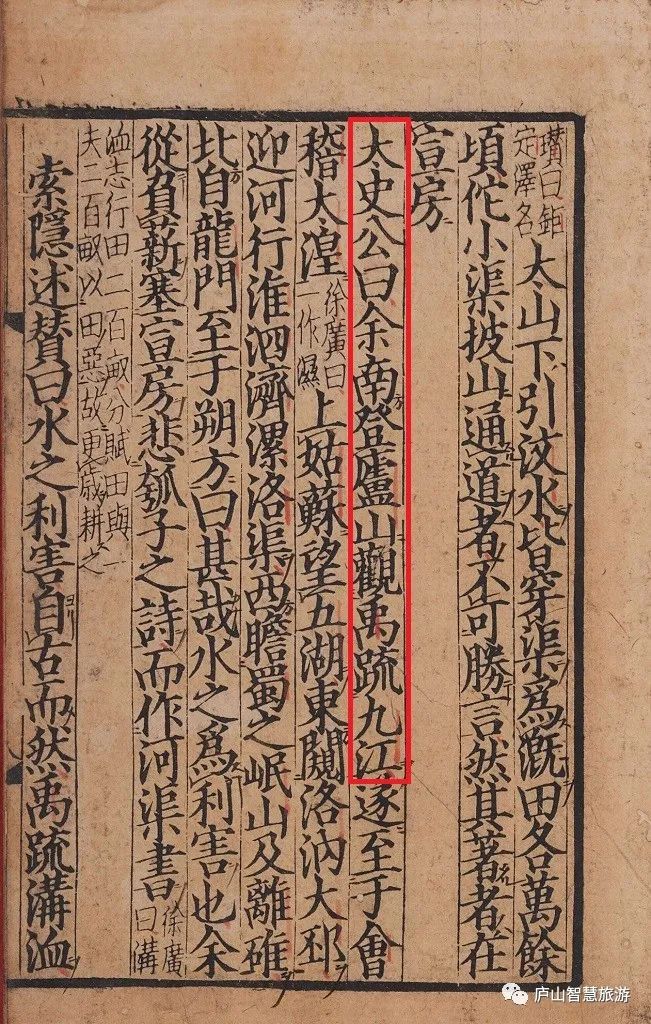 瓚曰鉅
定澤名
太山下引汶水皆穿渠爲漑田各萬餘
頃佗小渠披山通道者不可勝言然其著者在
宣房
太史公曰余南登廬山觀禹疏九江遂至于會
稽太湟
徐廣曰
一作濕
上姑蘇望五湖東闚洛汭大邳
迎河行淮泗濟漯洛渠西瞻蜀之岷山及離碓
北自龍門至于朔方曰甚哉水之爲利害也余
從負薪塞宣房悲瓠子之詩而作河渠書
徐廣
曰溝
洫志行田二百畝分賦田與一
夫二百畝以田惡故更歲耕之
索隱述贊曰水之利害自古而然禹疏溝洫
庐山智慧旅游